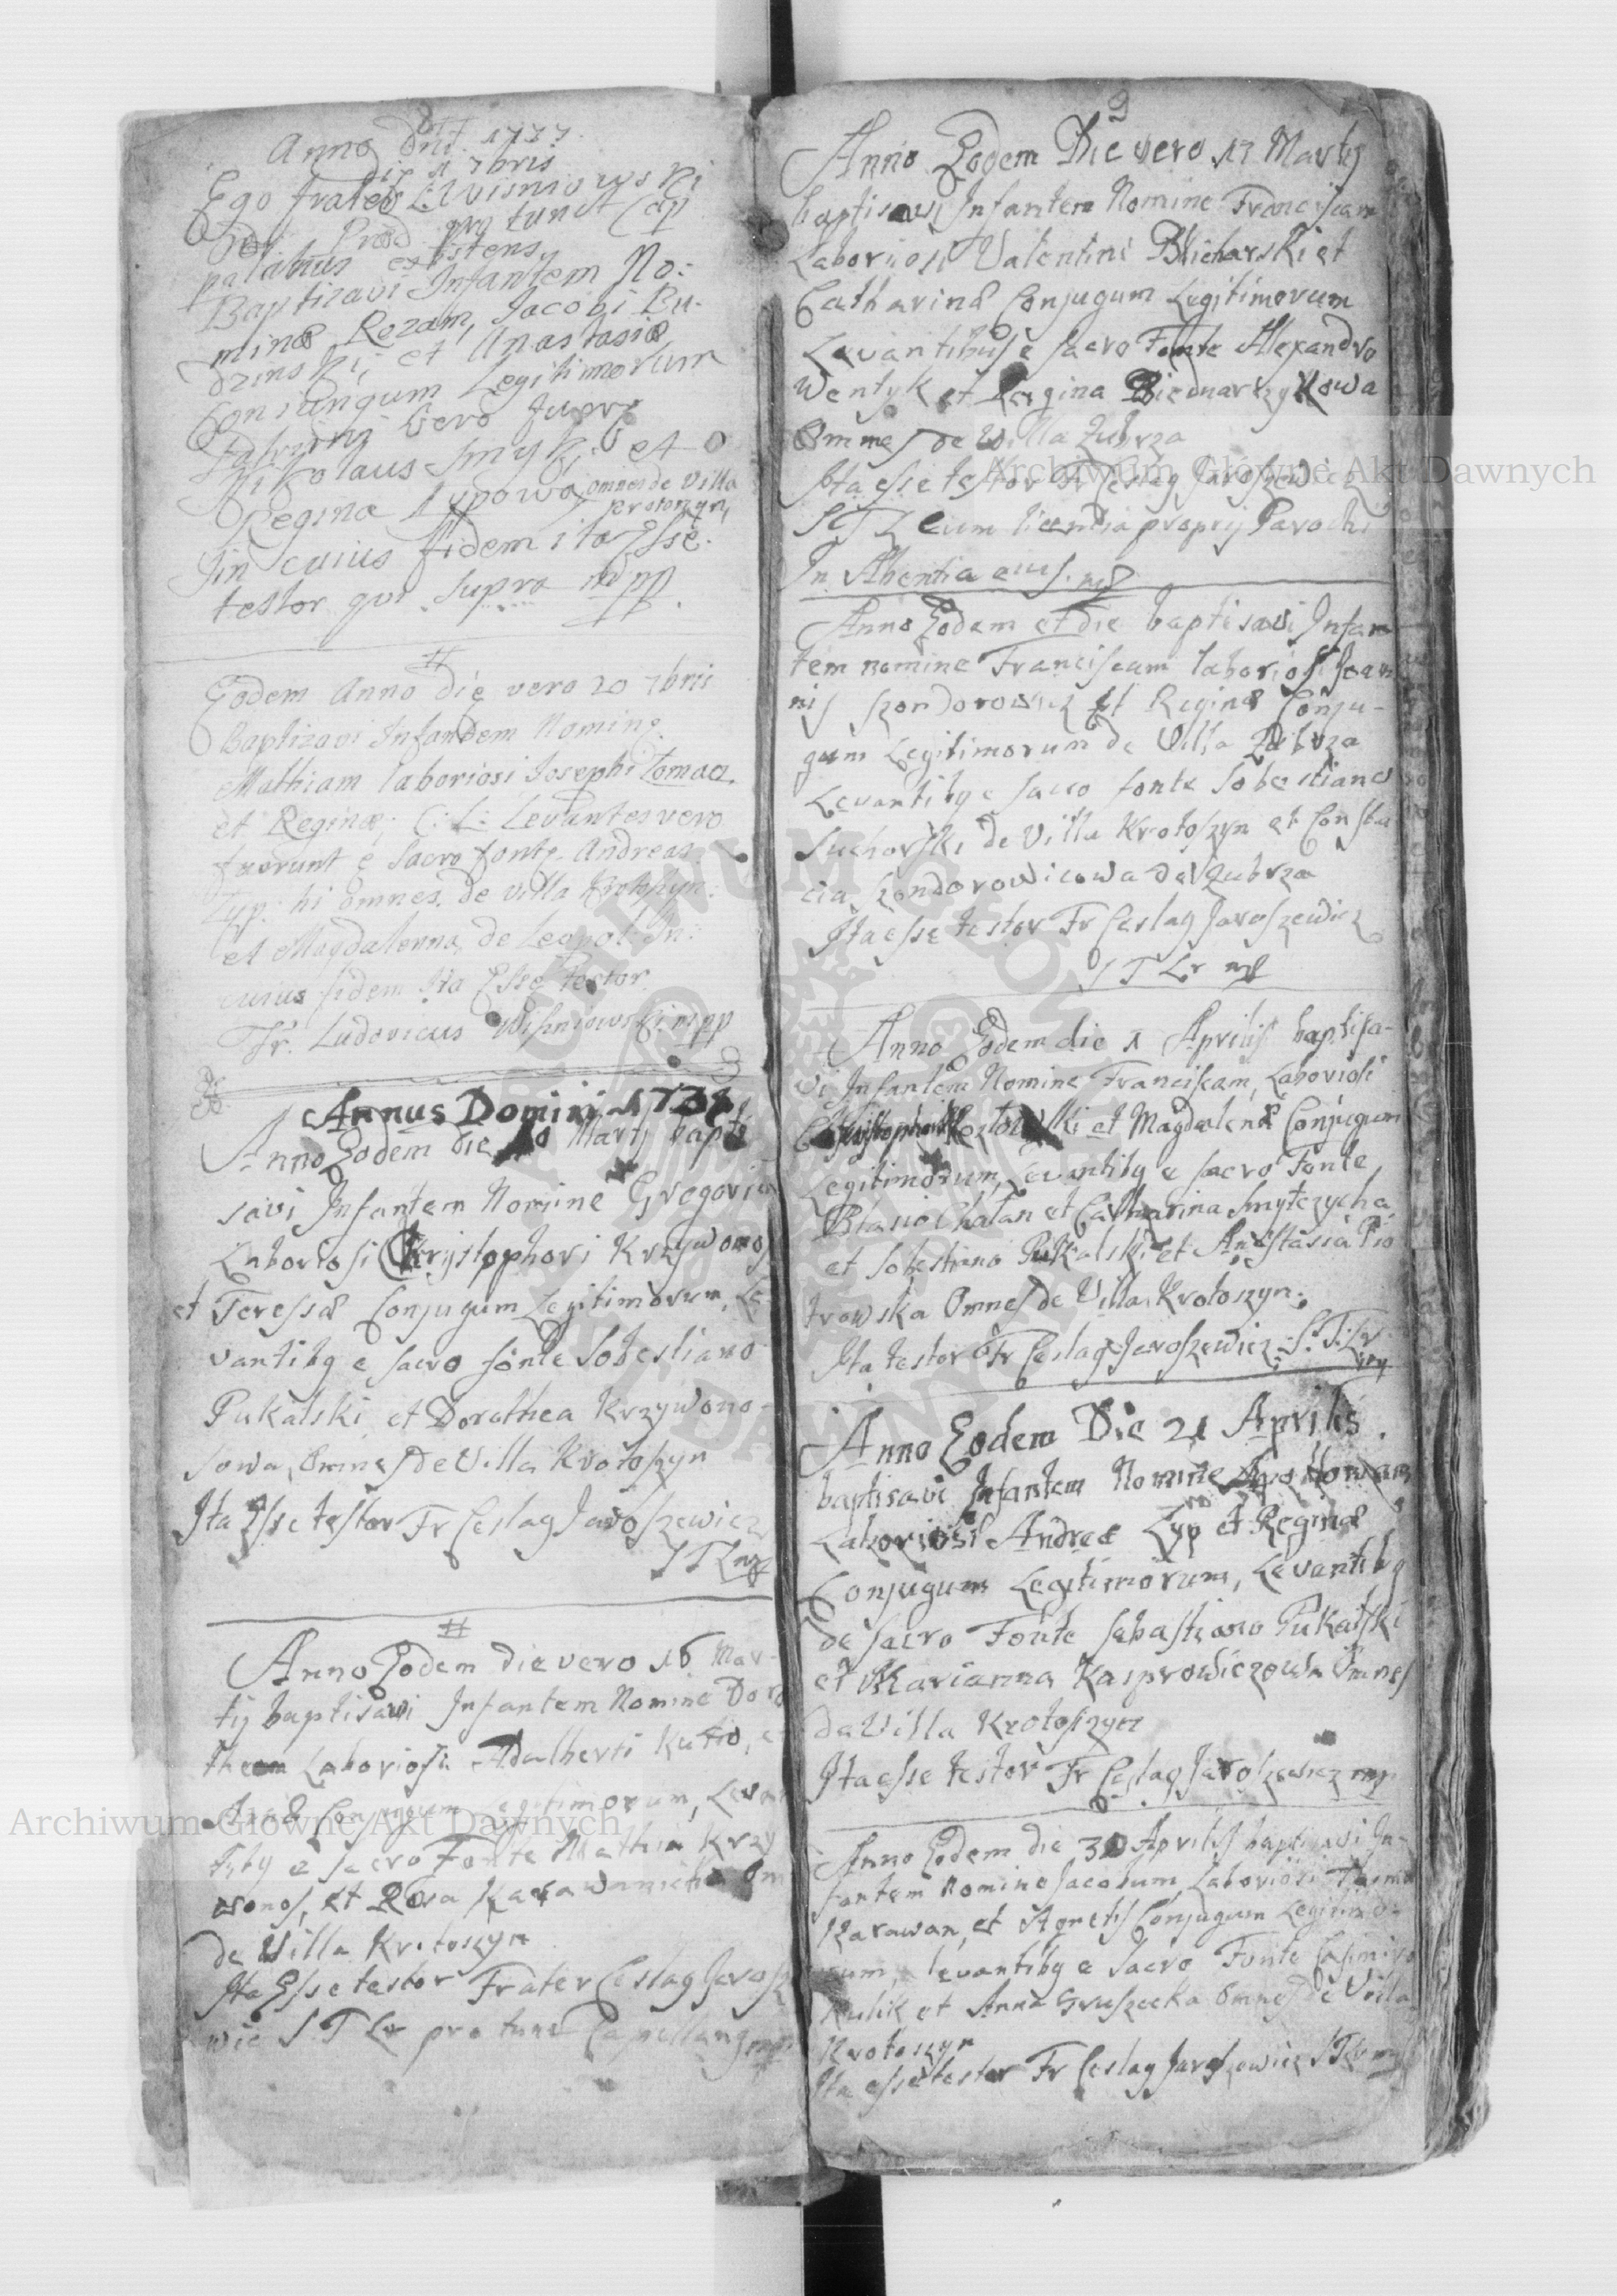 Anno Dni. 1737.
die 1 7bris
Ego frater L: Wisniowski
Ord Præd pro tunc Cap
palanus existens
Baptizavi Infantem No:
minæ Rozam, Jacobi Bu-
dzinski, et Anastasiæ
Coniungum Legitimorum
vero fuere
Nikolaus Smyk, et
Regina Lypowa, omnes de Villa
Krotoszyn,
Jin cuius fidem ita Esse.
testor qui supra mpp.
#
Eodem Anno die vero 20 7bris
Baptizavi Infantem Nomine
Mathiam laboriosi Josephi Tomac
et Reginæ; C: L: Levantes vero
fuerunt e Sacro fonte Andreas
Lyp: hi omnes de villa Krotoszyn:
et Magdalenna de Leopol: In:
cuius fidem Ita Esse testor
Fr. Ludovicus Wiszniowski mpp
Annus Domini 1738
Anno Eodem die 10 Martij bapti
savi Infantem Nomine Gregoriu
Laboriosi Krystophori Krzywonos
et Teressæ Conjugum Legitimorum, Le
vantibg e sacro fonte Sobestiano
Pukalski et Dorothea Krzywono-
sowa, Omnes de Villa Krotoszyn
Ita Esse testor Fr Ceslag Jaroszewicz
S T L mp
#
Anno Eodem die vero 16 Mar-
tij baptisavi Infantem Nomine Doro
theam Laboriosi Adalberti Kutio, e
Conjugum Legitimorum, Levan
tibg e sacro Fonte Mathia Krzy
wonos, et Rosa Karawanicha Om
de Villa Krotoszyn
Ita Esse testor Frater Ceslag Jarosz
wic S T Lr pro tunc Capellang mp
9
Anno Eodem Die vero 17 Martij
baptisavi Infantem Nomine Franciscam
Laboriosi Valentini Blicharski et
Catharinæ Conjugum Legitimorum
Levantibus e sacro Fonte Alexandro
Wentyk et Regina Biednarzykowa
Omnes de Villa Zubrza
Ita esse testor Fr Ceslag Jaroszewicz
S T L cum licentia proprij Parochi
In Absentia eius. mp
Anno Eodem et die baptisavi Infan
tem nomine Franciscam laboriosi Joan
nis Szondorowicz et Reginæ Conju-
gum Legitimorum de Villa Zubrza
Levantibg e sacro fonte Sobestiano
Suchorski de Villa Krotoszyn et Consta
cia Szondorowicowa de Zubrza
Ita esse testor Fr Ceslag Jaroszewicz
S T Lr mp
Anno Eodem die 1 Aprilis baptisa-
vi Infantem Nomine Franciscam, Laboriosi
et Magdalenæ Conjugum
Legitimorum, Levantibg e sacro Fonte
Blasio Chatan et Catharina Smytczycha,
et Sobestiano Pukalski et Anastasia Pio
trowska Omnes de Villa Krotoszyn.
Ita testor Fr Ceslag Jaroszewicz S. T. Lr.
mp
Anno Eodem Die 21 Aprilis.
baptisavi Infantem Nomine
Laboriosi Andreæ Lyp et Reginæ
Conjugum Legitimorum, Levantibg
de sacro Fonte Sebastiano Pukalski
et Marianna Kasprowiczowa Omnes
de Villa Krotoszyn
Ita esse testor Fr Ceslag Jaroszewicz mp
Anno Eodem die 30 Aprilis baptisavi In-
fantem Nomine Jacobum Laboriosi Thoma
Karawan, et Agnetis Conjugum Legitimo-
rum, levantibg e sacro Fonte Casimiro
Kulik et Anna Gruszecka Omnes de Villa
Krotoszyn
Ita esse testor Fr Ceslag Jaroszewicz S T Lr mp
Archiwum Główne Akt Dawnych
Archiwum Główne Akt Dawnych
ARCHIWUM GŁÓWNE AKT DAWNYCH